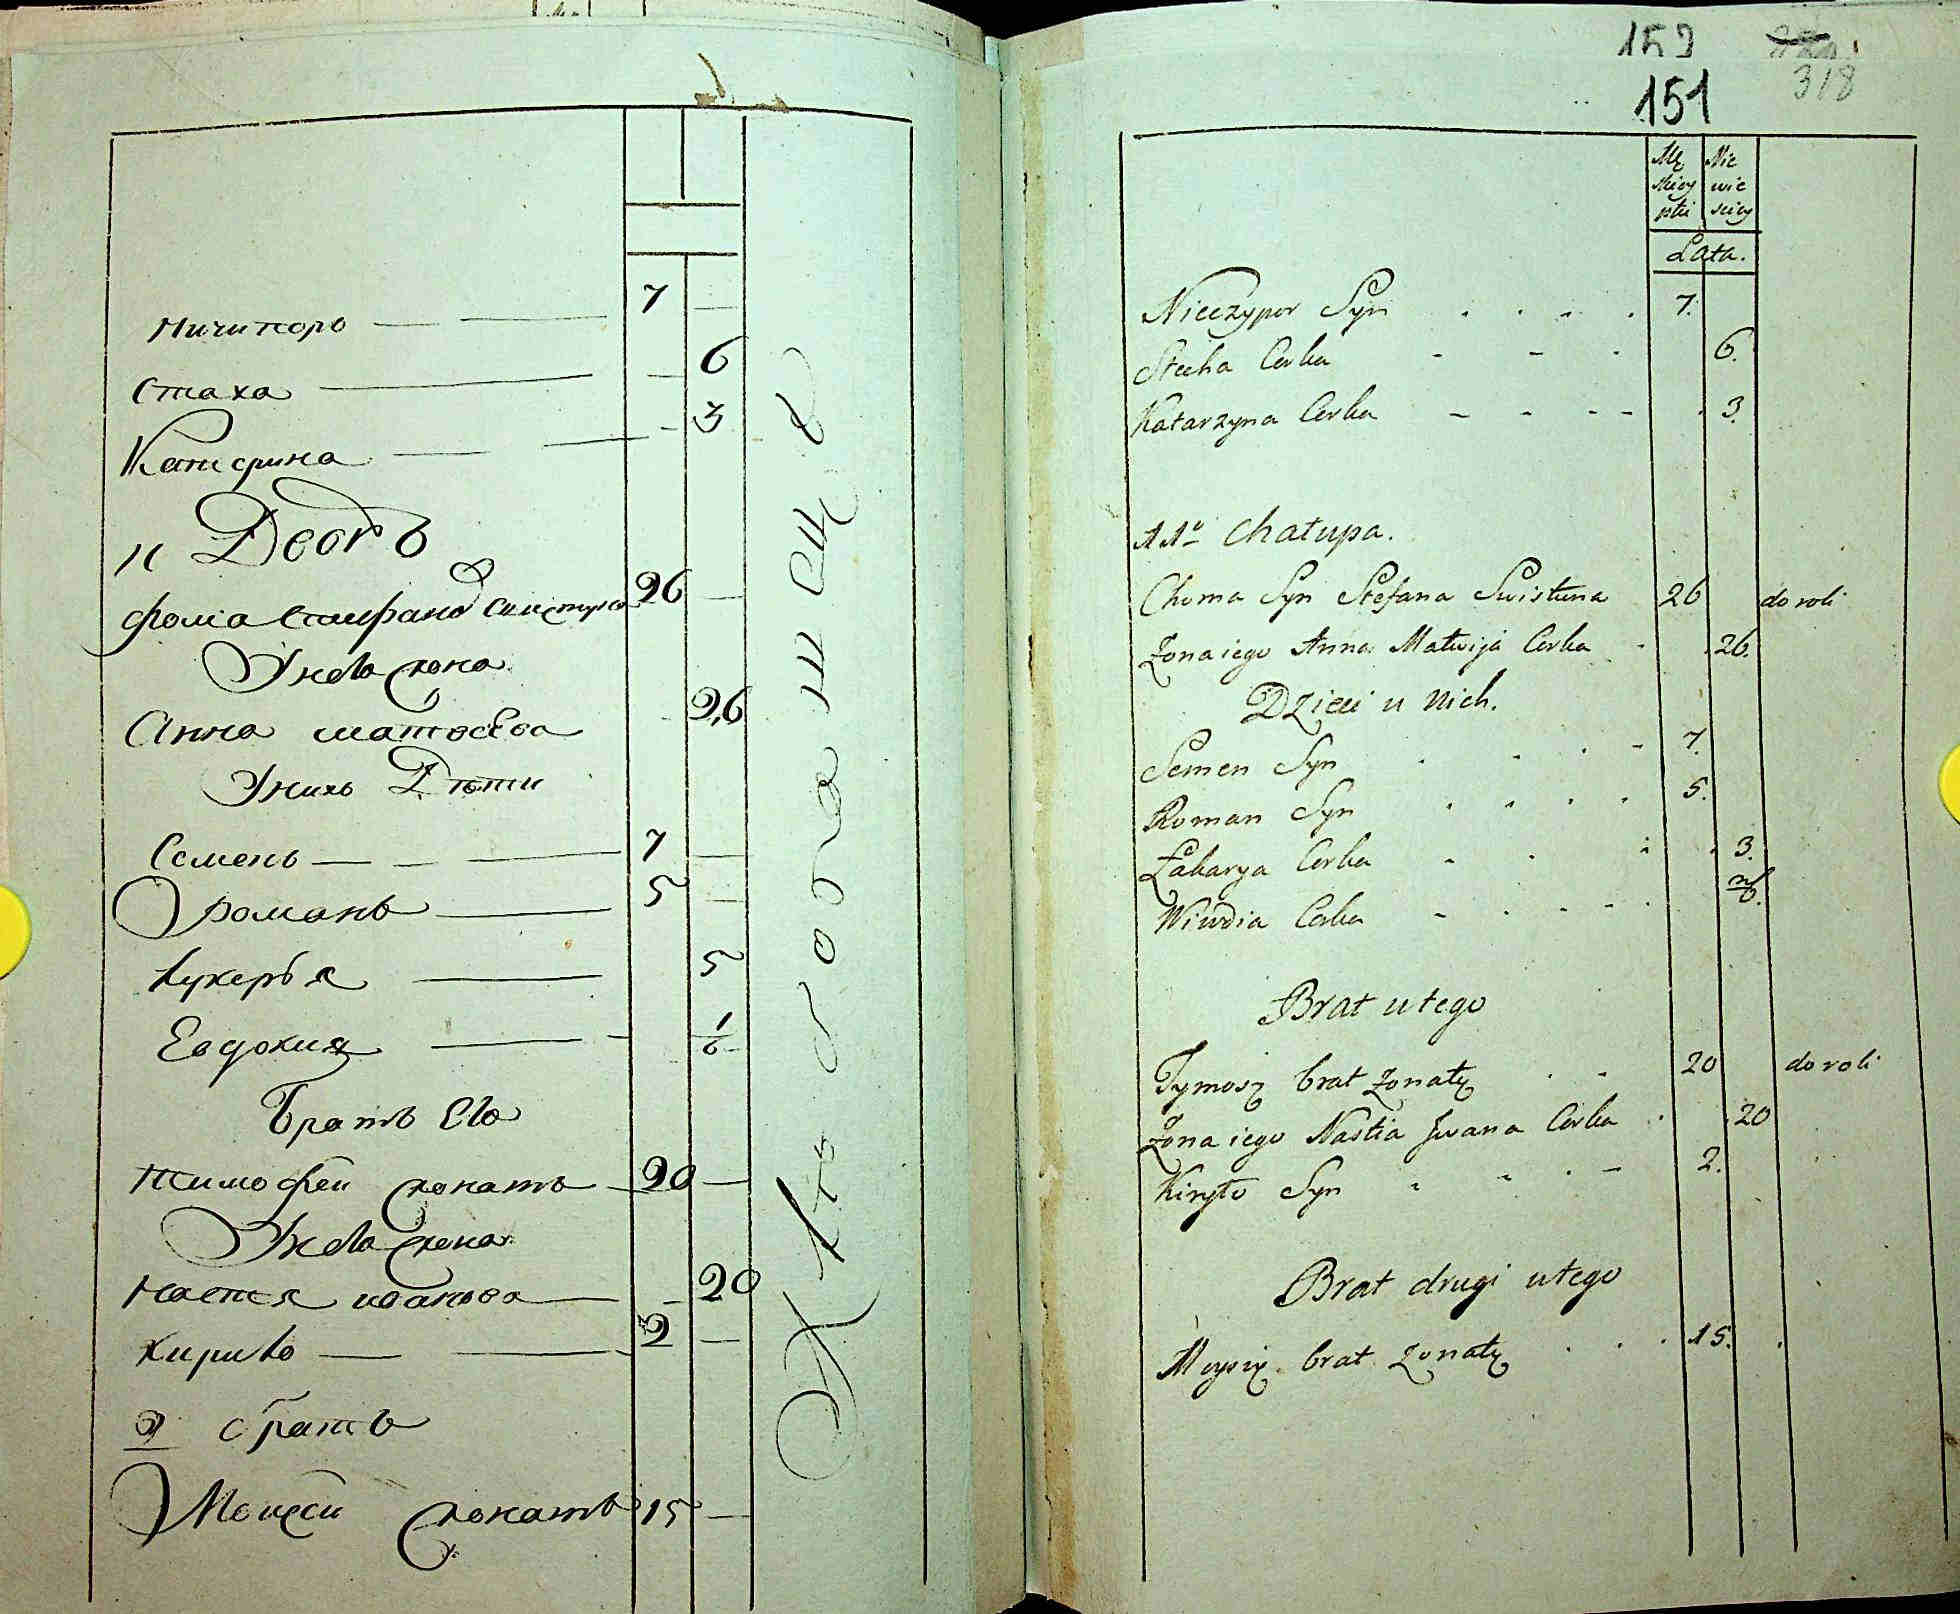 Ничипоръ — — 7 —
Стаха — — 6
Катерина — — 3
11 Дворъ
Фома Стефановъ Свистунъ 26 —
У него жена
Анна матвеева 26
У нихъ Дѣти
Семенъ — — — 7 —
Романъ — 5 —
Лукерья — 5
Евдокия — — 1/6
Братъ Его
тимофеи женатъ — 20 —
У него жена
настя иванова — — 20
кирило — — 2 —
2 братъ
Моисеи женатъ 15 —
159
151
318
Mę Nie
skiey wie
płci sciey
Lata.
Nieczypor Syn 7.
Stecha Corka 6.
Katarzyna Corka 3.
11º Chałupa.
Choma Syn Stefana Swistuna 26 do roli
Zona iego Anna Matwija Corka 26.
Dzieci u nich.
Semen Syn 7.
Roman Syn 5.
Łukarya Corka 3.
Wiwdia Corka
Brat u tego
Tymosz brat zonaty 20 do roli
Zona iego Nastia Jwana Corka 20
Kiryło Syn 2.
Brat drugi u tego
Moysiy brat zonaty 15.